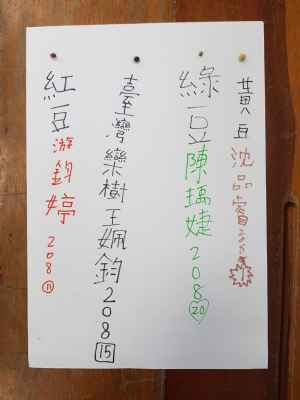 黃豆沈品睿208
綠豆陳璃婕208 20
臺灣欒樹王姵鈞208 15
紅豆游鈞婷208 11